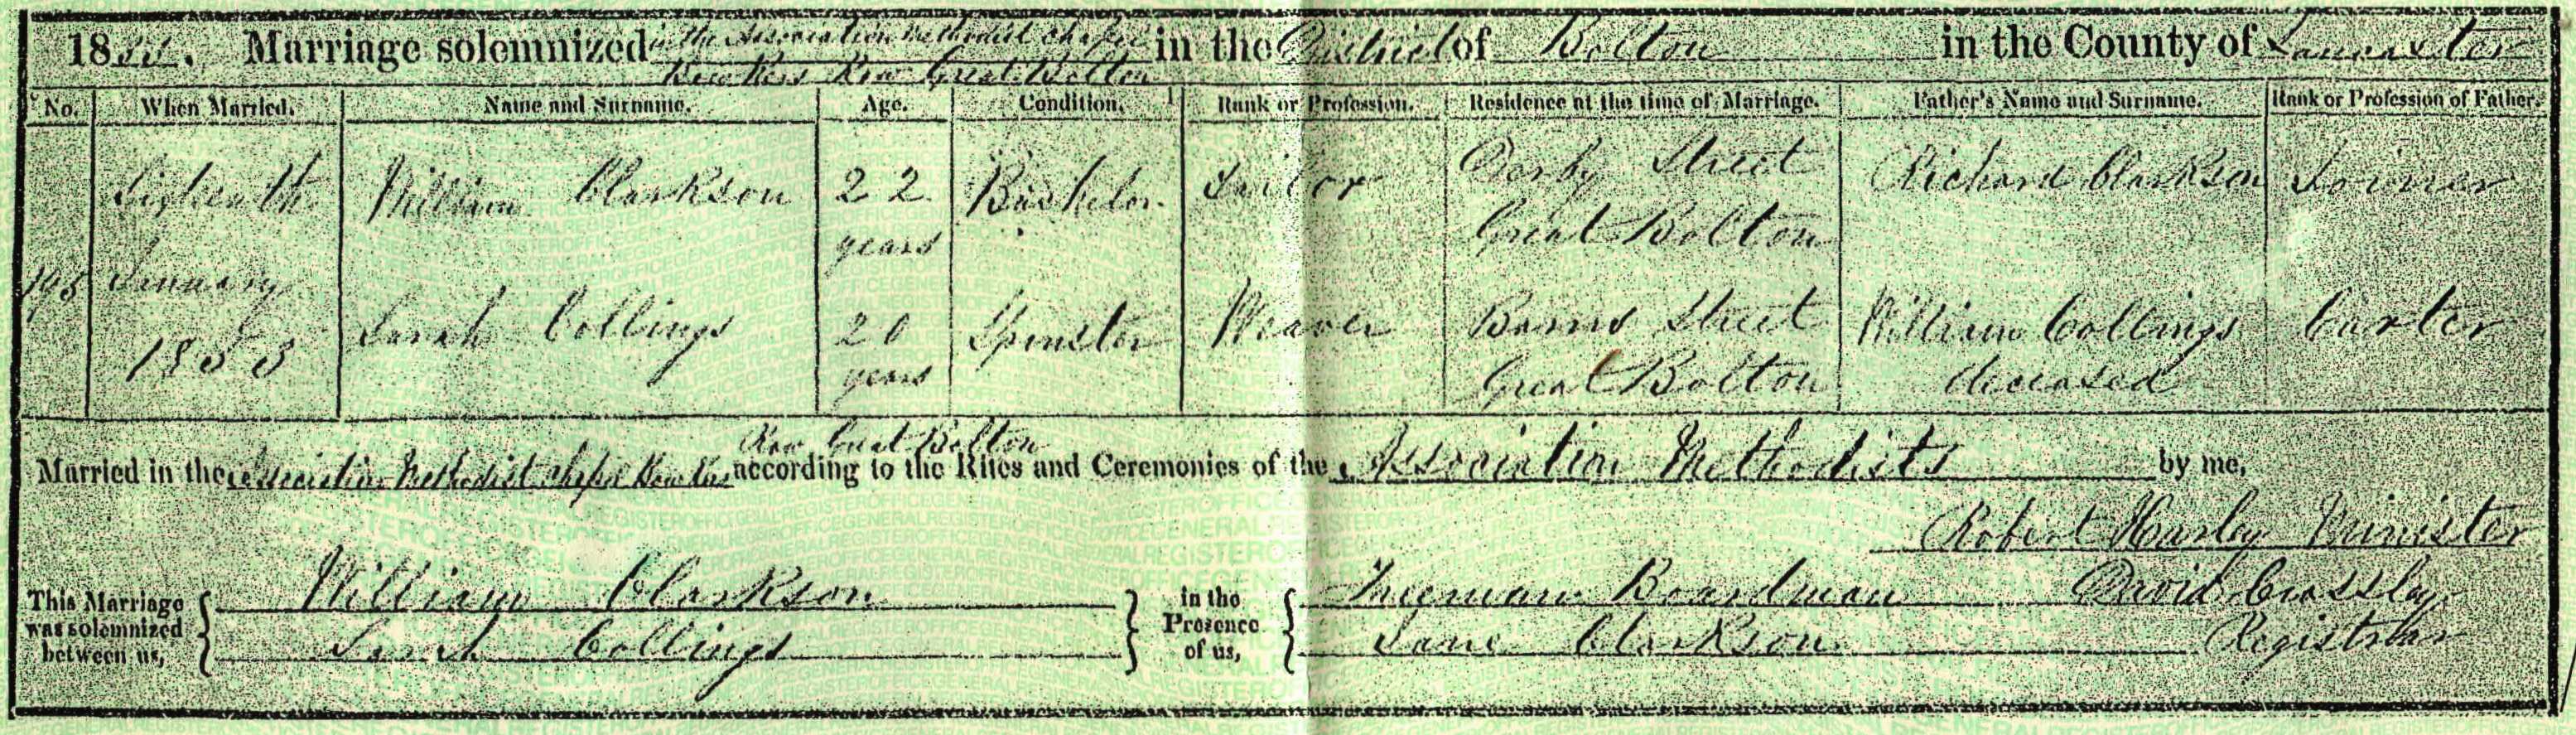 1853. Marriage solemnized in the Association Methodist Chapel in the District of Bolton in the County of Lancaster
Bowkers Row Great Bolton
No. When Married. Name and Surname. Age. Condition. Rank or Profession. Residence at the time of Marriage. Father's Name and Surname. Rank or Profession of Father.
Sixteenth William Clarkson 22 Bachelor Tailor Derby Street Richard Clarkson Joiner
years Great Bolton
195 January
Sarah Collings 20 Spinster Weaver Street William Collings Carter
1853 years Great Bolton deceased
Row Great Bolton
Married in the Association Methodist Chapel Bowkers according to the Rites and Ceremonies of the Association Methodists by me,
Robert Harley Minister
This Marriage was solemnized between us, William Clarkson in the Presence of us, Boardman David Crossley
Sarah Collings Jane Clarkson Registrar
GENERAL REGISTER OFFICE